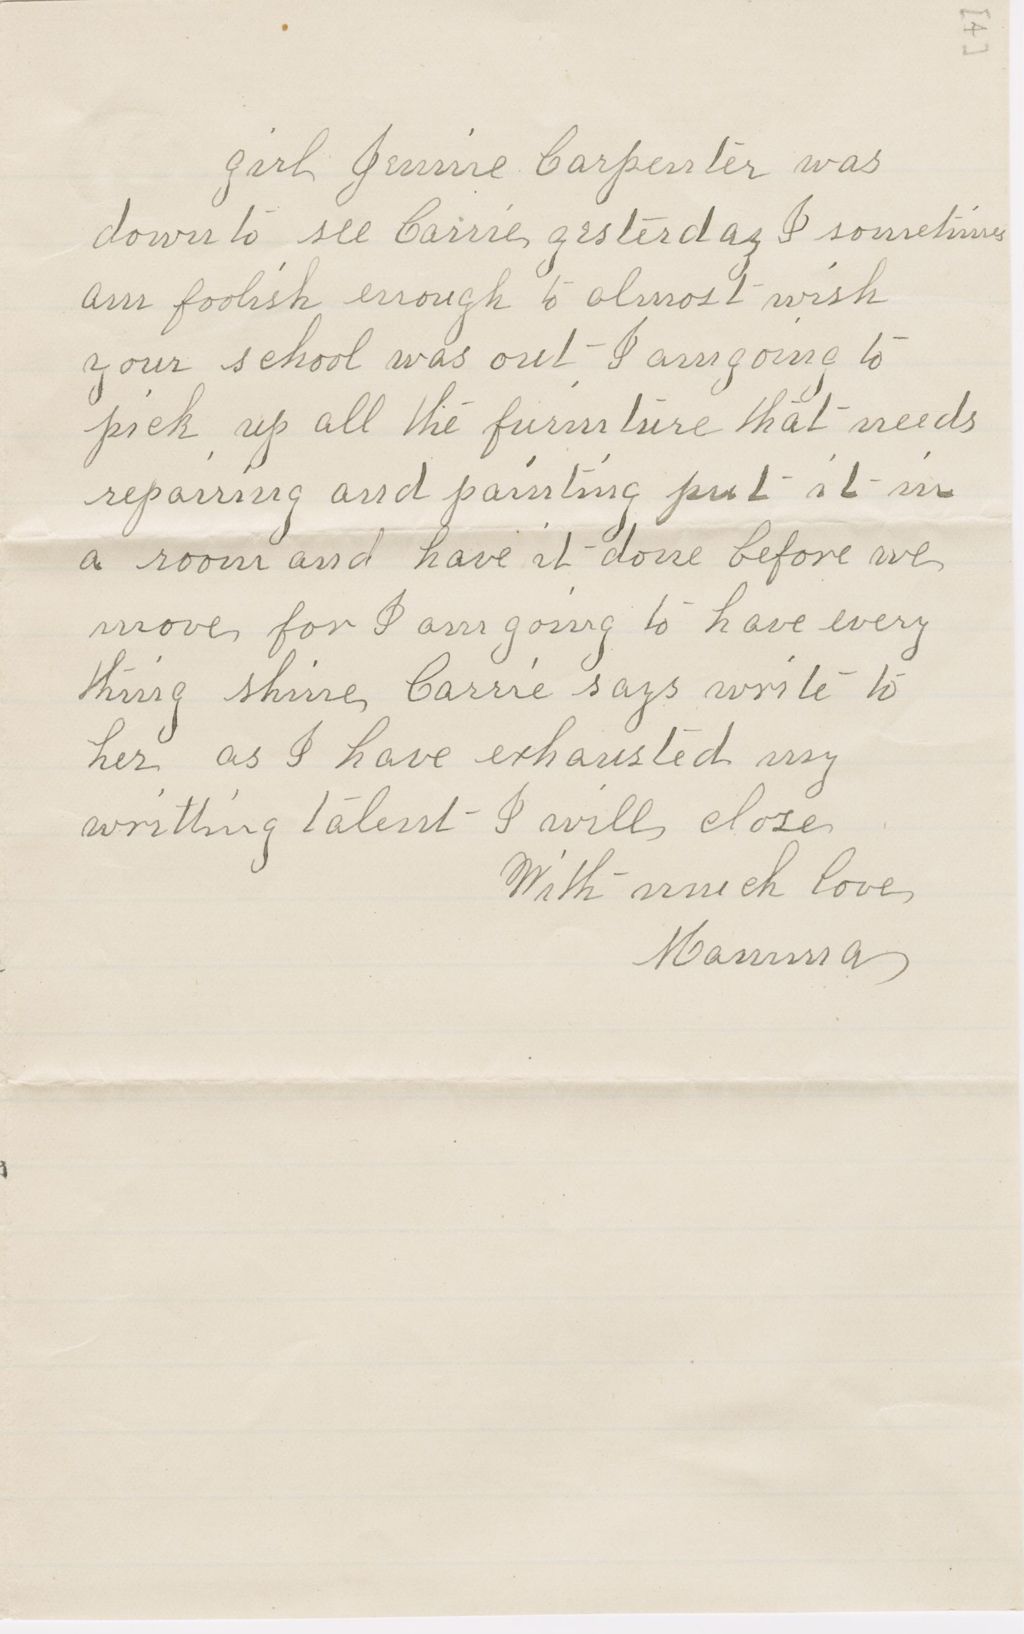 [4]
girl Jennie Carpenter was
down to see Carrie yesterday I sometimes
am foolish enough to almost wish
your school was out I am going to
pick up all the furniture that needs
repairing and painting put it in
a room and have it done before we
move for I am going to have every
thing shine Carrie says write to
her as I have exhausted my
writting talent I will close
With much love
Mamma